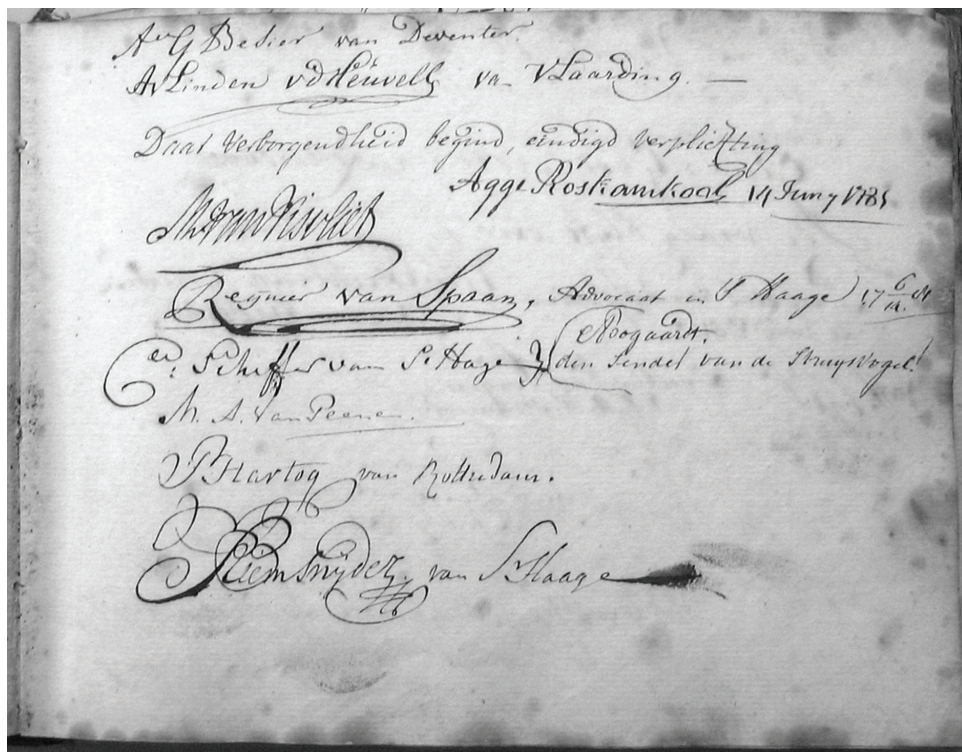 A. G. Besier van Deventer.
A v Linden v d Heuvell van VLaarding. —
Daar Verborgendheid begind, eindigd verplichting
Agge Roskam Kool 14 Juny 1781
Reynier van Spaan, Advocaat in S Haage 17 6/12 81
Noogaardt.
Scheffer van S. Hage den Sendel van de Struysvogel.
M. A. Van Peenen.
P Hartog van Rotterdam.
Riemsnyder, van S Haage